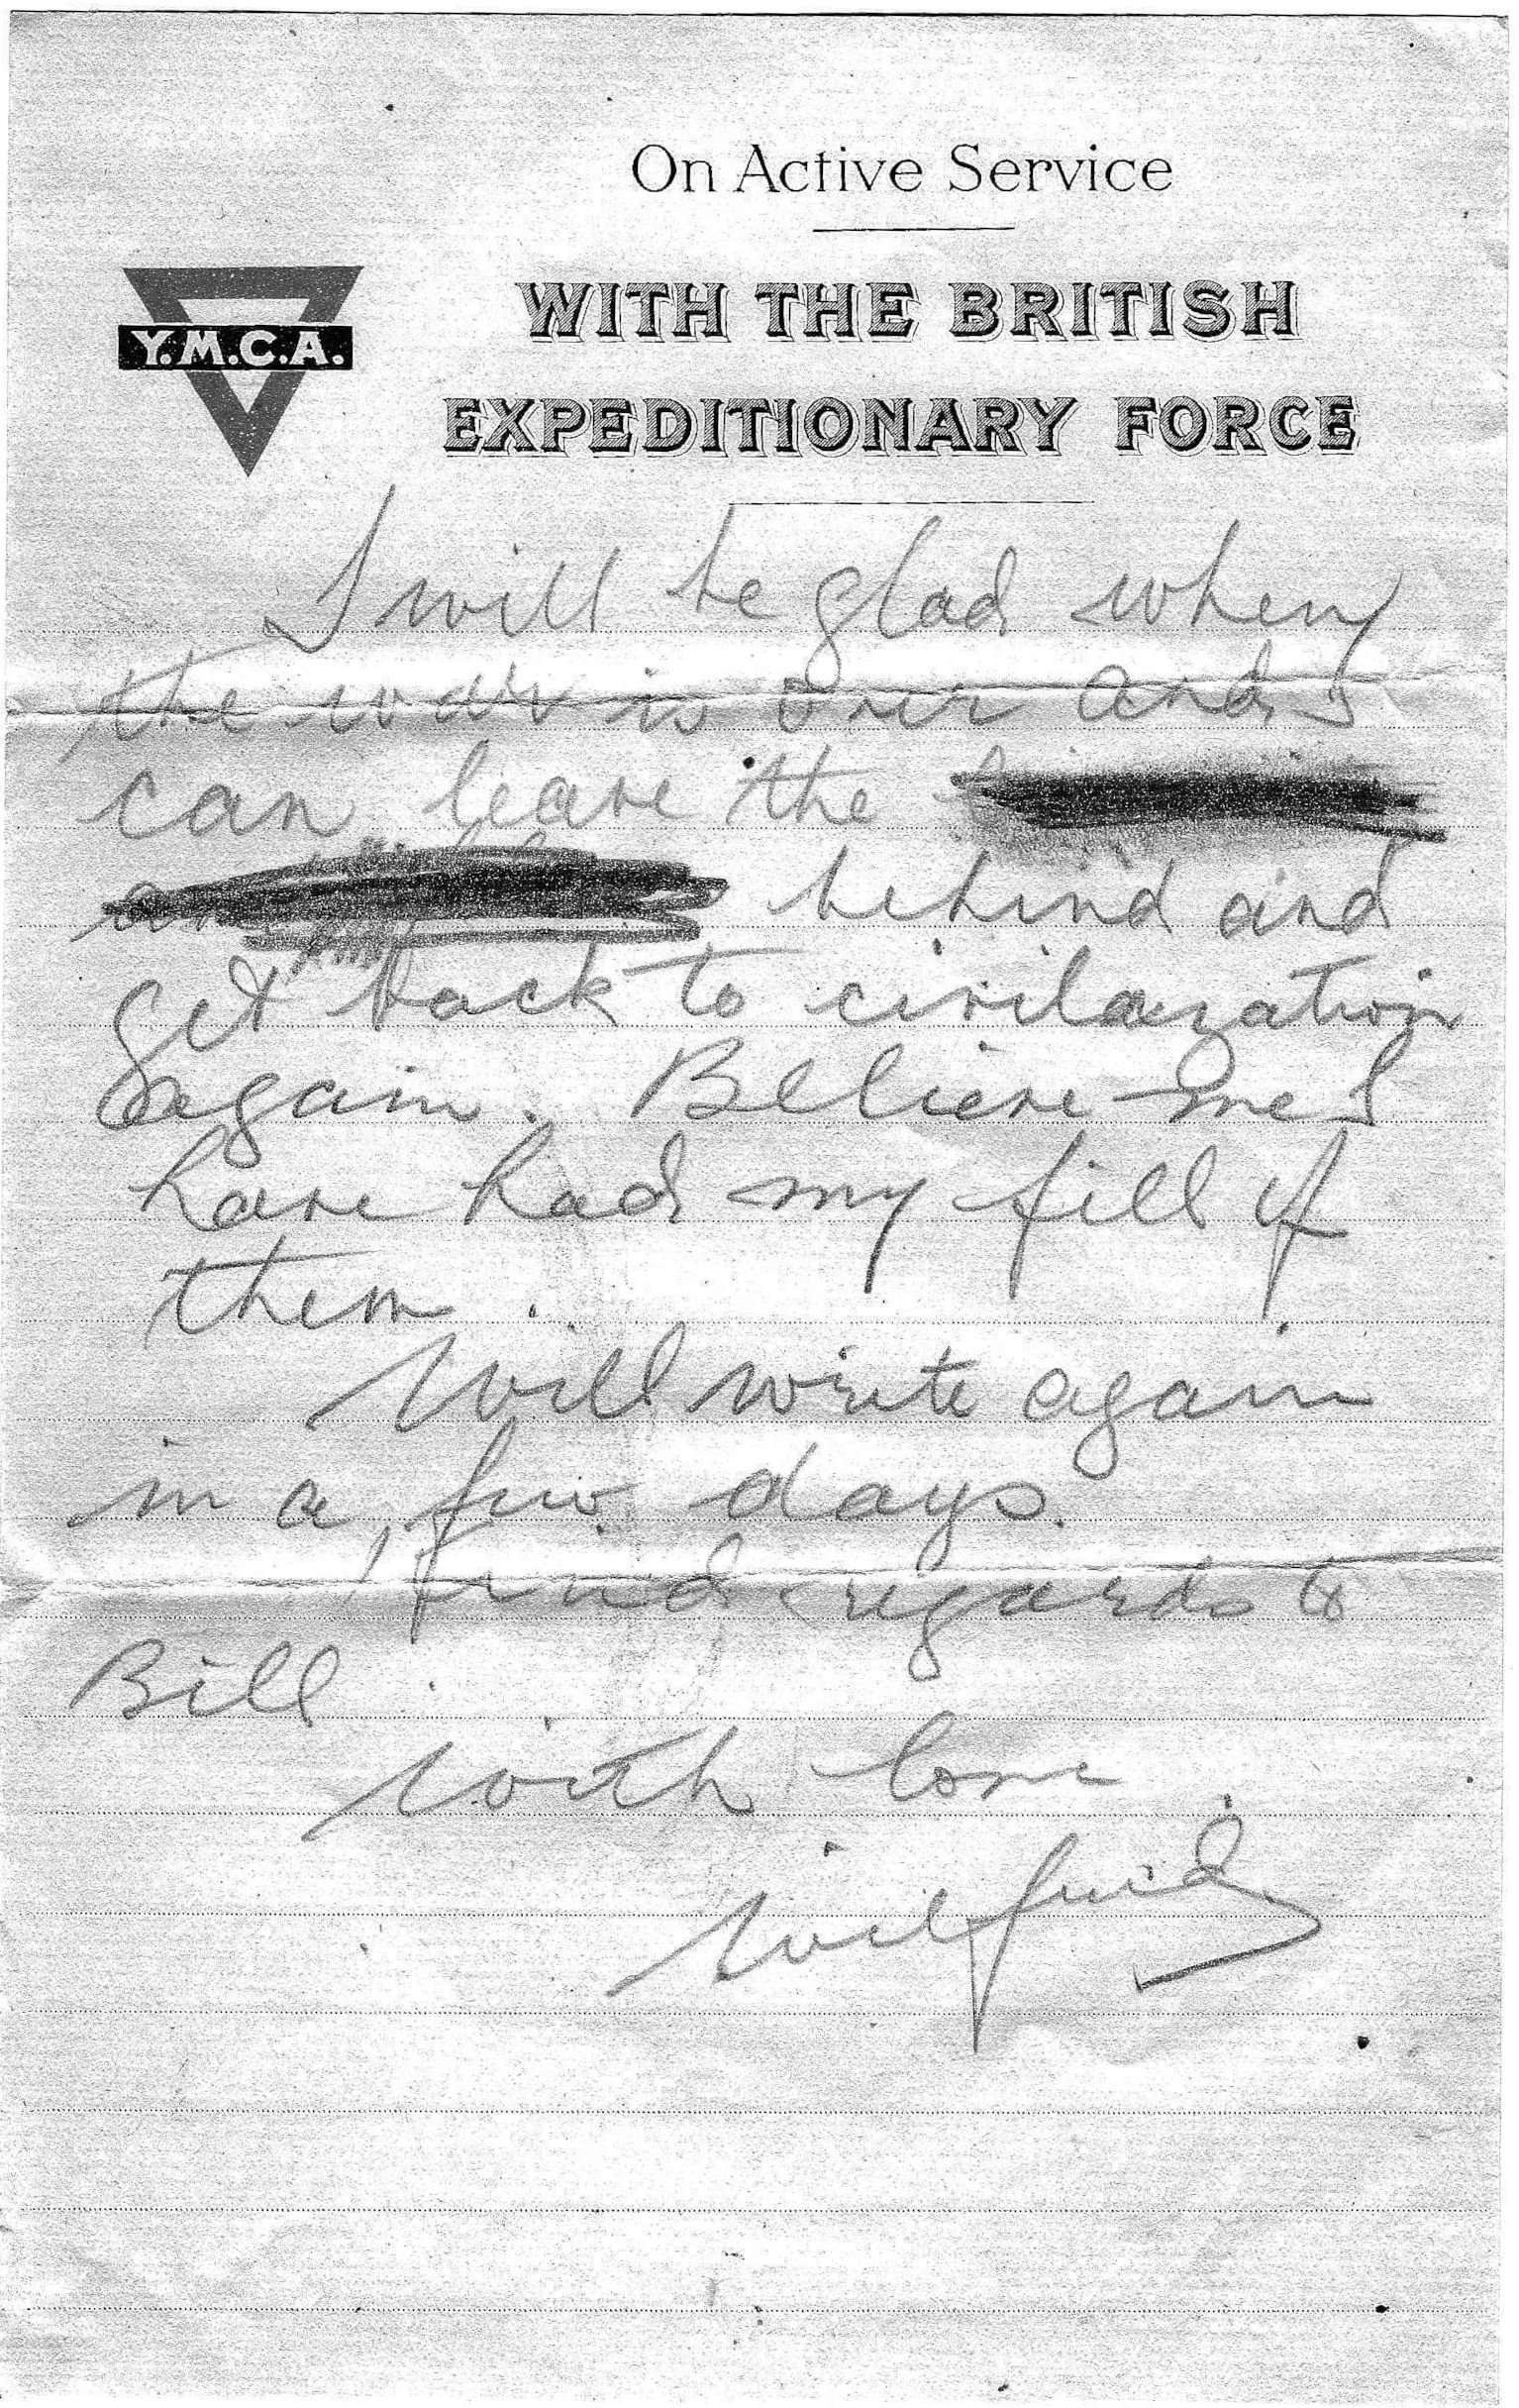 On Active Service
Y.M.C.A.
WITH THE BRITISH
EXPEDITIONARY FORCE
I will be glad when
the war is over and I
can leave the
behind and
get back to civilazation
again. Believe me I
have had my fill of
them.
Will write again
in a few days.
Kind regards to
Bill.
With love
Wilfrid